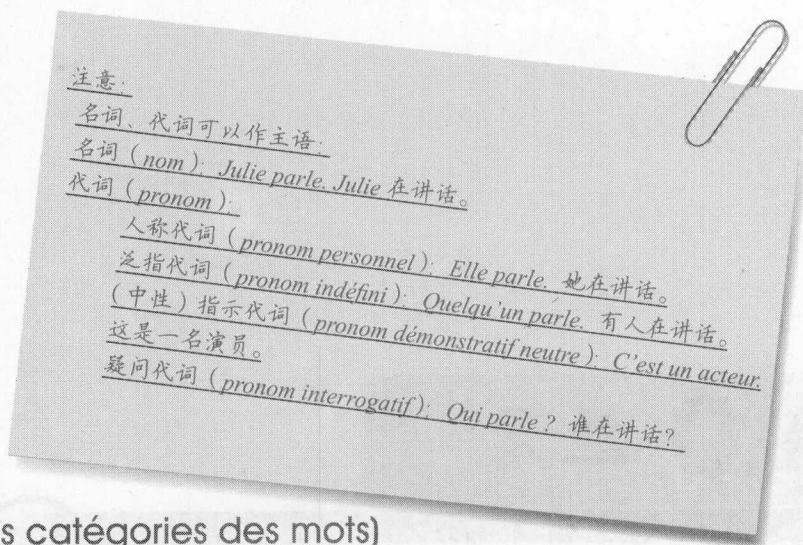 注意：
名词、代词可以作主语：
名词（nom）：Julie parle. Julie 在讲话。
代词（pronom）：
人称代词（pronom personnel）：Elle parle. 她在讲话。
泛指代词（pronom indéfini）：Quelqu'un parle. 有人在讲话。
（中性）指示代词（pronom démonstratif neutre）：C'est un acteur.
这是一名演员。
疑问代词（pronom interrogatif）：Qui parle ? 谁在讲话？
s catégories des mots)